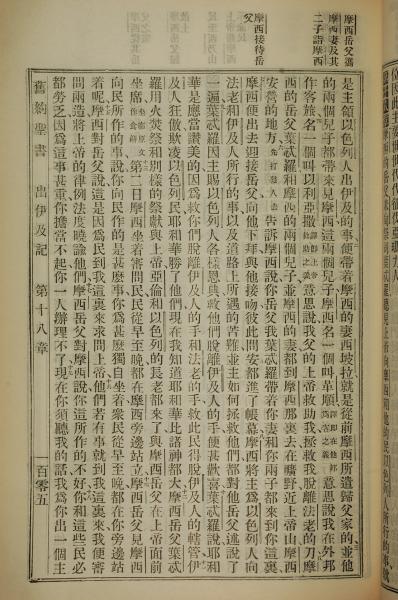 摩西岳父攜
摩西妻及其
二子詣摩西
摩西接待岳
父
是主領以色列人出伊及的事便帶着摩西的妻西坡拉就是從前摩西所遣歸父家的並他
的兩個兒子都帶來見摩西這兩個兒子一名叫革順譯即在他鄉爲客之義意思說我在外邦
作客旅名一個叫以利亞撒譯即上帝救助之義意思說我父的上帝救助我拯救我脫離法老的刀摩
西的岳父葉忒羅和摩西的兩個兒子並摩西的妻都到摩西那裏去在曠野近上帝山摩西
安營的地方先打發人去告訴摩西說你岳父我葉忒羅帶着你妻和你兩子都來到你這裏
摩西便出去迎接岳父向他下拜與他接吻彼此問安都進了帳幕摩西將主爲以色列人向
法老和伊及人所行的事以及道路上所遇的苦難並主如何拯救他們都對他岳父述說了
一遍葉忒羅因主賜以色列人各樣恩典救他們脫離伊及人的手便甚歡喜葉忒羅說耶和
華是應當讚美的因爲救你們脫離伊及人的手和法老的手救此民得脫伊及人的轄管伊
及人狂傲欺凌以色列民耶和華勝了他們現在我知道耶和華比諸神都大摩西岳父葉忒
羅用火焚祭和別樣的祭獻與上帝亞倫和以色列的長老都來了與摩西岳父在上帝面前
坐席坐席原文作食餅第二日摩西坐着審問民民從早至晚都在摩西旁邊站立摩西岳父見摩西
向民所作的事說你向民作的是甚麼事你爲甚麼獨自坐着衆民從早至晚都在你旁邊站
着呢摩西對岳父說這是因爲民到我這裏來求問上帝他們若有事就到我這裏來我便審
問兩造將上帝的律例法度曉諭他們摩西岳父對摩西說你這所作的不好你和這些民必
都勞乏因爲這事甚重你擔當不起你一人辦理不了現在你須聽我的話我爲你出一個主
舊約聖書　出伊及記　第十八章　百零五